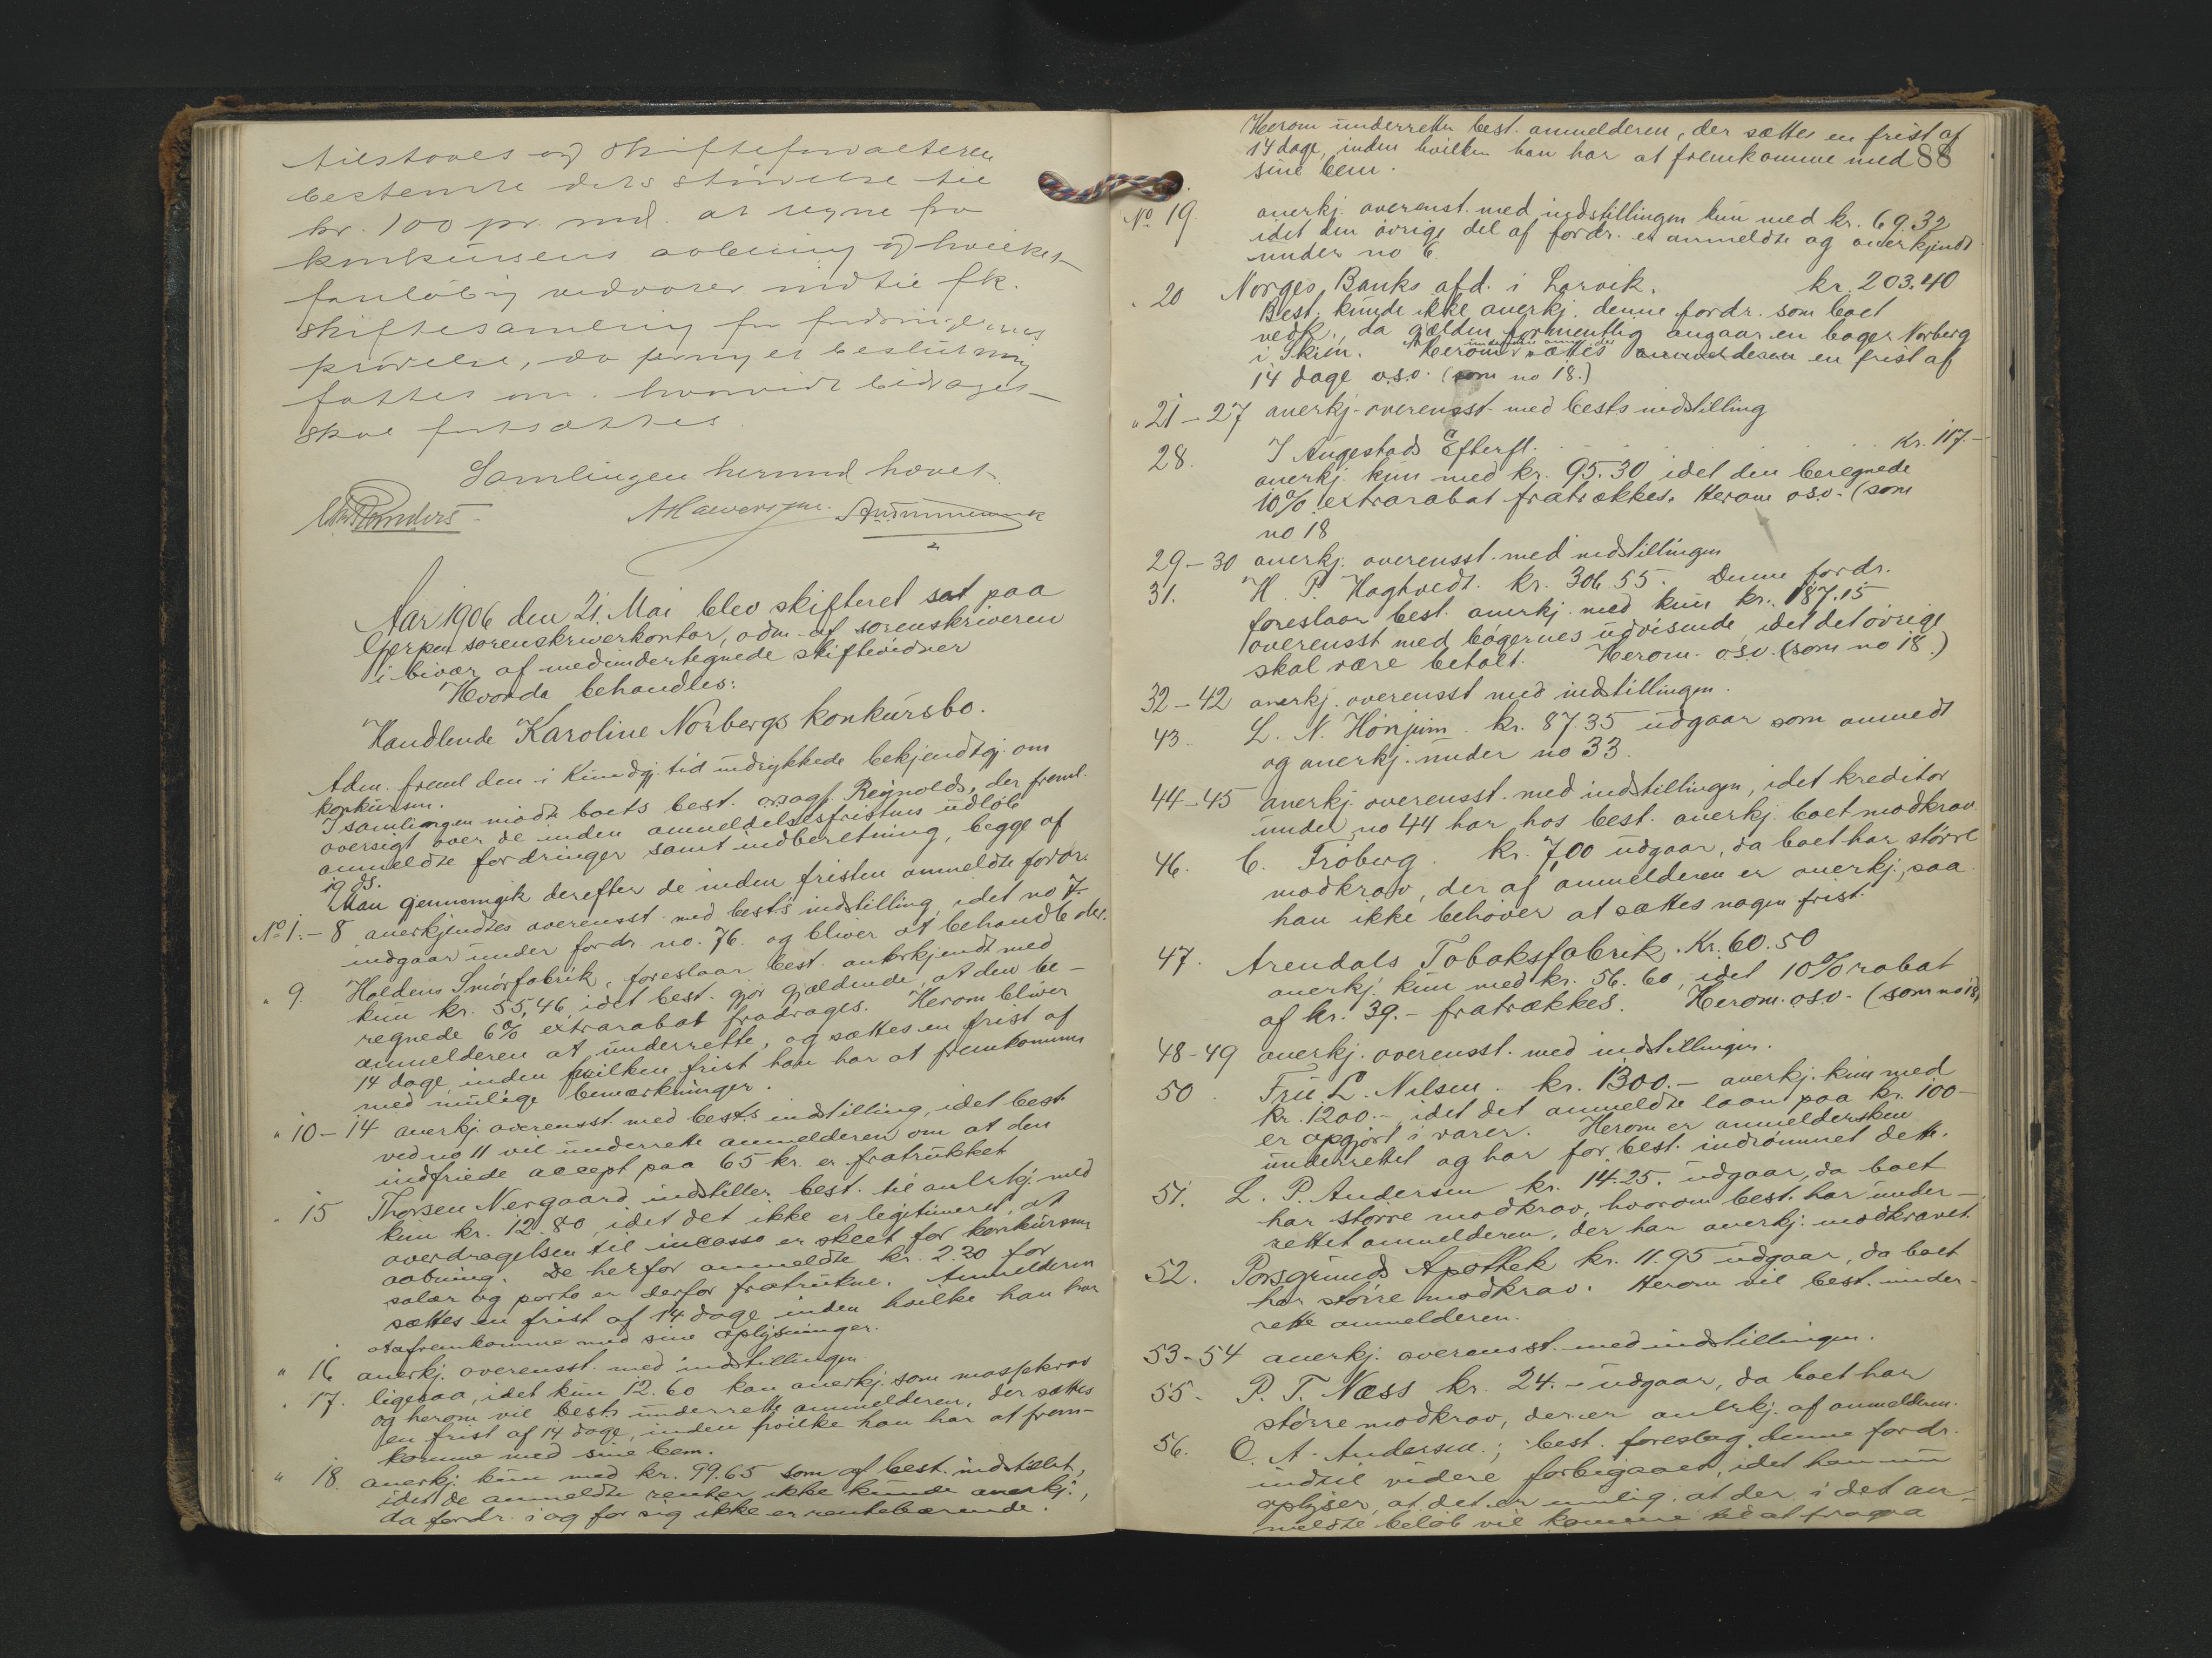 tilstodes og Skifteforvalteren
bestemte dets størrelse til
kr. 100 pr. md. at regne fra
konkursens aabning og hvilket
foreløbig vedvarer indtil
skiftesamling for fordringernes
prøvelse, da fornyet beslutning
fattes om hvorvidt bidraget
skal fortsættes.
Samlingen hermed hævet.
Aar 1906 den 21. Mai blev skifteret sat paa
Gjerpen sorenskriverkontor, adm. af sorenskriveren
i bivær af medundertegnede skiftevidner
Hvorda behandles:
Handlende Karoline Norbergs konkursbo.
Adm. freml den i Kundgj. tid indrykkede bekjendtgj. om
konkursen.
I samlingen mødte boets best. orsagf. Reynolds, der freml.
oversigt over de inden anmeldelsesfristens udløb
anmeldte fordringer samt indberetning, begge af
19 ds.
Man gjennemgik derefter de inden fristen anmeldte fordr.
No 1.-8 anerkjendtes overensst. med best's indstilling, idet no 7.
indgaar under fordr. no. 76. og bliver at behandle der.
" 9. Haldens Smörfabrik, foreslaar best. anerkjendt med
kun kr. 55,46, idet best. gjør gjældende, at den be-
regnede 6% extrarabat fradrages. Herom bliver
anmelderen at underrette, og sættes en frist af
14 dage, inden hvilken frist han har at fremkomme
med mulige bemærkninger.
" 10-14 anerkj. overensst. med best's indstilling, idet best.
ved no 11 vil underrette anmelderen om at den
indfriede accept paa 65 kr. er fratrukket
" 15 Thorsen Nergaard indstiller best. til anerkj. med
kun kr. 12.80, idet det ikke er legitimeret, at
overdragelsen til incasso er skeet før konkursens
aabning. De herfor anmeldte kr. 2.20 for
salær og porto er derfor fratrukne. Anmelderen
sættes en frist af 14 dage inden hvilke han har
at fremkomme med sine oplysninger.
" 16 anerkj. overensst. med indstillingen
" 17. ligesaa, idet kun 12.60 kan anerkj. som massekrav
og herom vil best. underrette anmelderen, der sættes
en frist af 14 dage, inden hvilke han har at frem-
komme med sine bem.
" 18. anerkj. kun med kr. 99.65 som af best. indstillet,
idet de anmeldte renter ikke kunde anerkj.,
da fordr. i og for sig ikke er rentebærende.
Herom underrettes best. anmelderen, der sættes en frist af
14 dage, inden hvilken han har at fremkomme med 88
sine bem.
No 19. anerkj. overenst. med indstillingen kun med kr. 69.32
idet den øvrige del af fordr. er anmeldte og anerkjendt
under no 6.
" 20 Norges Banks afd. i Larvik. kr. 203.40
Best. kunde ikke anerkj. denne fordr. som boet
vedk., da gjælden formentlig angaar en bager Norberg
i Skien. Herom underrettes anm., der sættes anmelderen en frist af
14 dage o.s.v. (som no 18.)
" 21-27 anerkj. overensst. med bests indstilling
28. J Augestads Efterfl. kr. 117.-
anerkj. kun med kr. 95.30 idet den beregnede
10% extrarabat fratrækkes. Herom osv. (som
no 18
29-30 anerkj. overensst. med indstillingen
31. H. P. Hagtvedt. kr. 306.55. Denne fordr.
foreslaar best. anerkj. med kun kr. 187.15
overensst med bøgernes udvisende, idet det øvrige
skal være betalt. Herom osv. (som no 18.)
32-42 anerkj. overensst med indstillingen.
43. L. N. Hönjum. kr. 87.35 udgaar som anmeldt
og anerkj. under no 33.
44-45 anerkj. overensst. med indstillingen, idet kreditor
under no 44 har hos best. anerkj. boet modkrav.
46. C. Fröberg. kr. 7,00 udgaar, da boet har større
modkrav, der af anmelderen er anerkj., saa
han ikke behøver at sættes nogen frist.
47. Arendals Tobaksfabrik. Kr. 60.50
anerkj. kun med kr. 56.60, idet 10% rabat
af kr. 39.- fratrækkes. Herom osv. (som no 18)
48-49 anerkj. overensst. med indstillingen.
50. Fru L. Nilsen. kr. 1300.- anerkj. kun med
kr. 1200.-, idet det anmeldte laan paa kr. 100-
er opgjort i varer. Herom er anmeldersken
underrettet og har for best. indrømmet dette.
51. L. P. Andersen kr. 14.25. udgaar, da boet
har større modkrav, hvorom best. har under-
rettet anmelderen, der har anerkj. modkravet.
52. Porsgrunds Apothek kr. 11.95 udgaar, da boet
har større modkrav. Herom vil best. under-
rette anmelderen.
53-54 anerkj. overensst. med indstillingen.
55- P. T. Næss kr. 24.- udgaar, da boet har
større modkrav, der er anerkj. af anmelderen.
56. O. A. Andersen.; best. foreslog denne fordr.
indtil videre forbigaaet, idet han nu
oplyser, at det er mulig, at der i det an-
meldte beløb vil komme til at fragaa